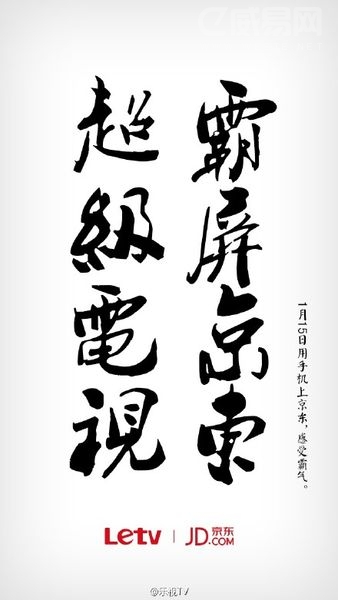 霸屏京東
超級電視
1月15日用手机上京东，感受霸气。
Letv
JD 京东
.COM
@乐视TV